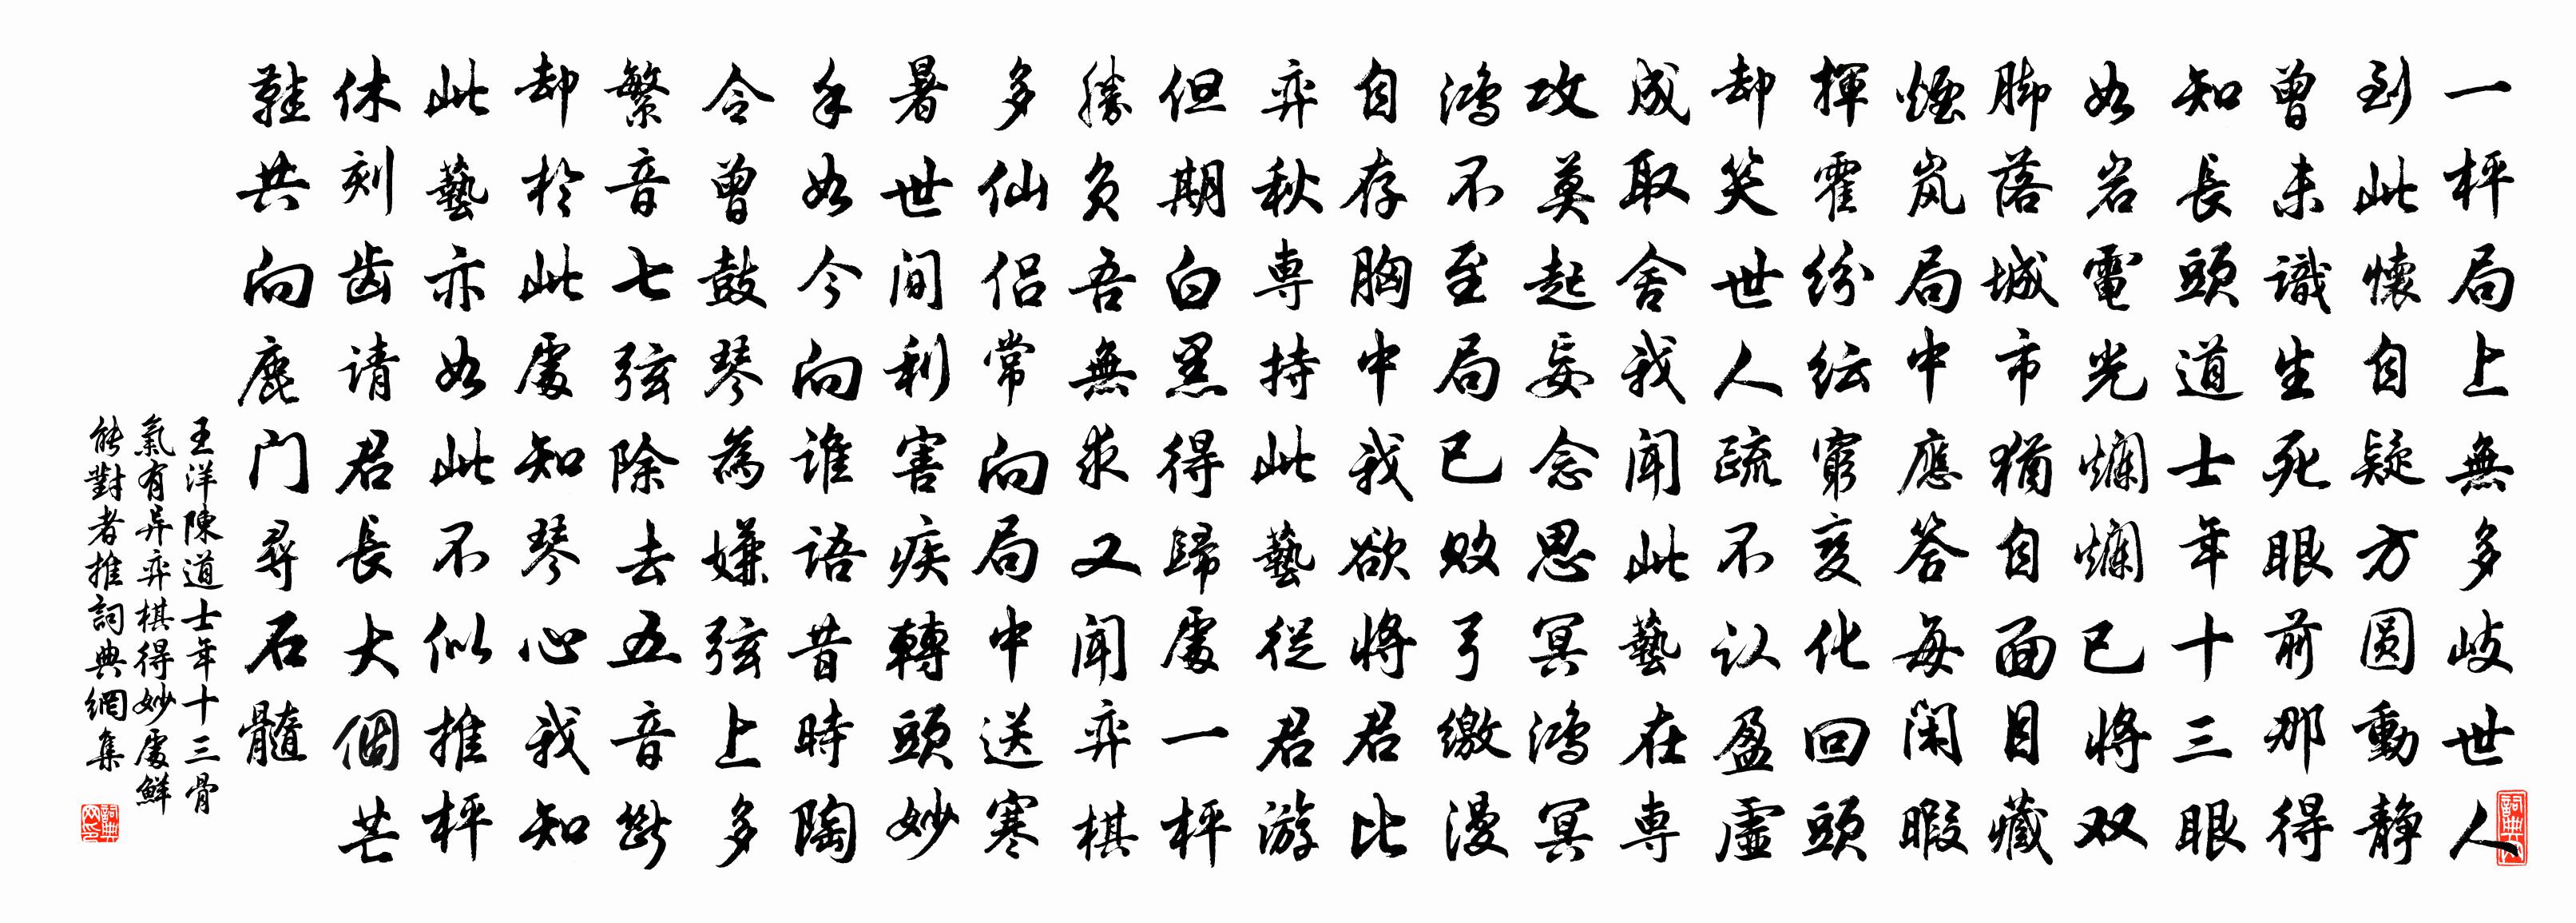 一枰局上無多歧世人
到此懷自疑方圓動靜
曾未識生死眼前那得
知長頭道士年十三眼
如岩電光爛爛已將双
脚落城市猶自面目藏
煙岚局中應答每閑暇
揮霍紛紜窮变化回頭
却笑世人疏不以盈虛
成取舍我聞此藝在専
攻莫起妄念思冥鴻冥
鴻不至局已敗弓繳漫
自存胸中我欲將君比
弈秋専持此藝從君游
但期白黑得歸處一枰
勝負吾無求又聞弈棋
多仙侣常向局中送寒
暑世间利害疾轉頭妙
手如今向誰語昔時陶
令曾鼓琴為嫌弦上多
繁音七弦除去五音斷
却於此處知琴心我知
此藝亦如此不似推枰
休刻齿请君長大個芒
鞋共向鹿门尋石髓
王洋陳道士年十三骨
氣有异弈棋得妙處鮮
能對者推詞典網集
詞典